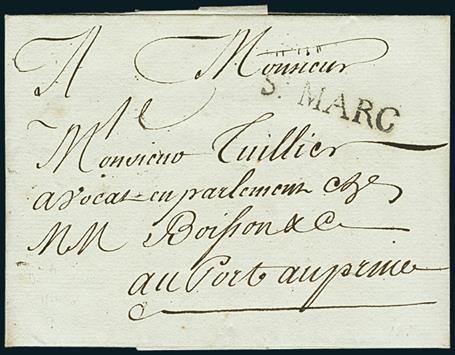 A Monsieur
St MARC
Monsieur Tuillier
avocat en parlement chez
MM Boisson & Ce
au Port au prince